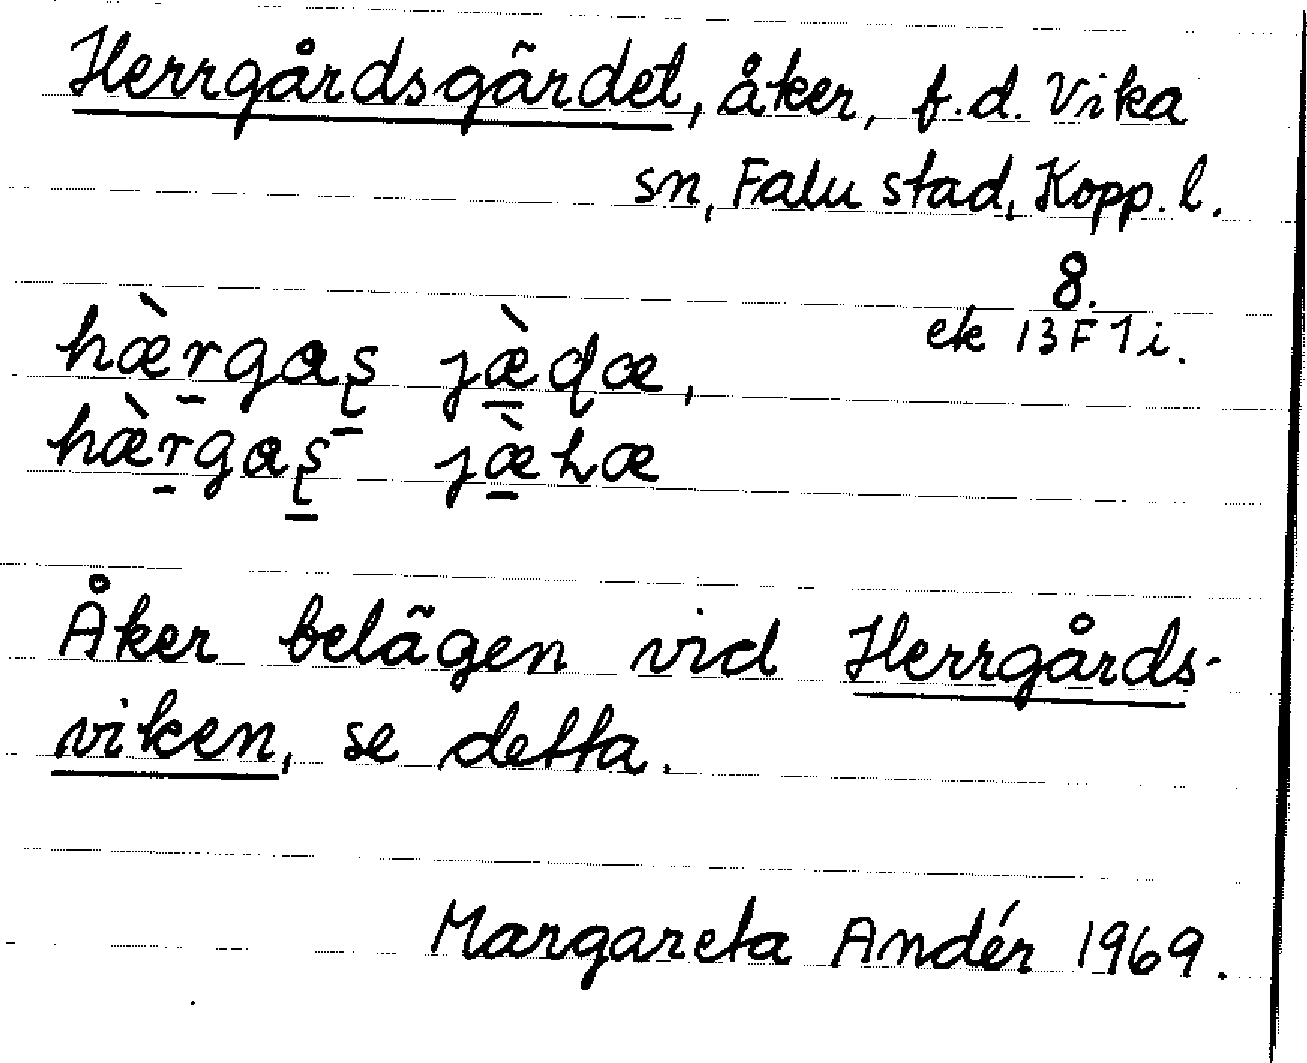 Herrgårdsgärdet, åker, f.d. Vika
sn, Falu stad, Kopp. l.
8.
ek 13 F 1 i.
hæ̀r̠gaʂ̠ jæ̠̀ɖæ,
hæ̀r̠gaʂ̠ jæ̠̀Læ
Åker belägen vid Herrgårds-
viken, se detta.
Margareta Andér 1969.